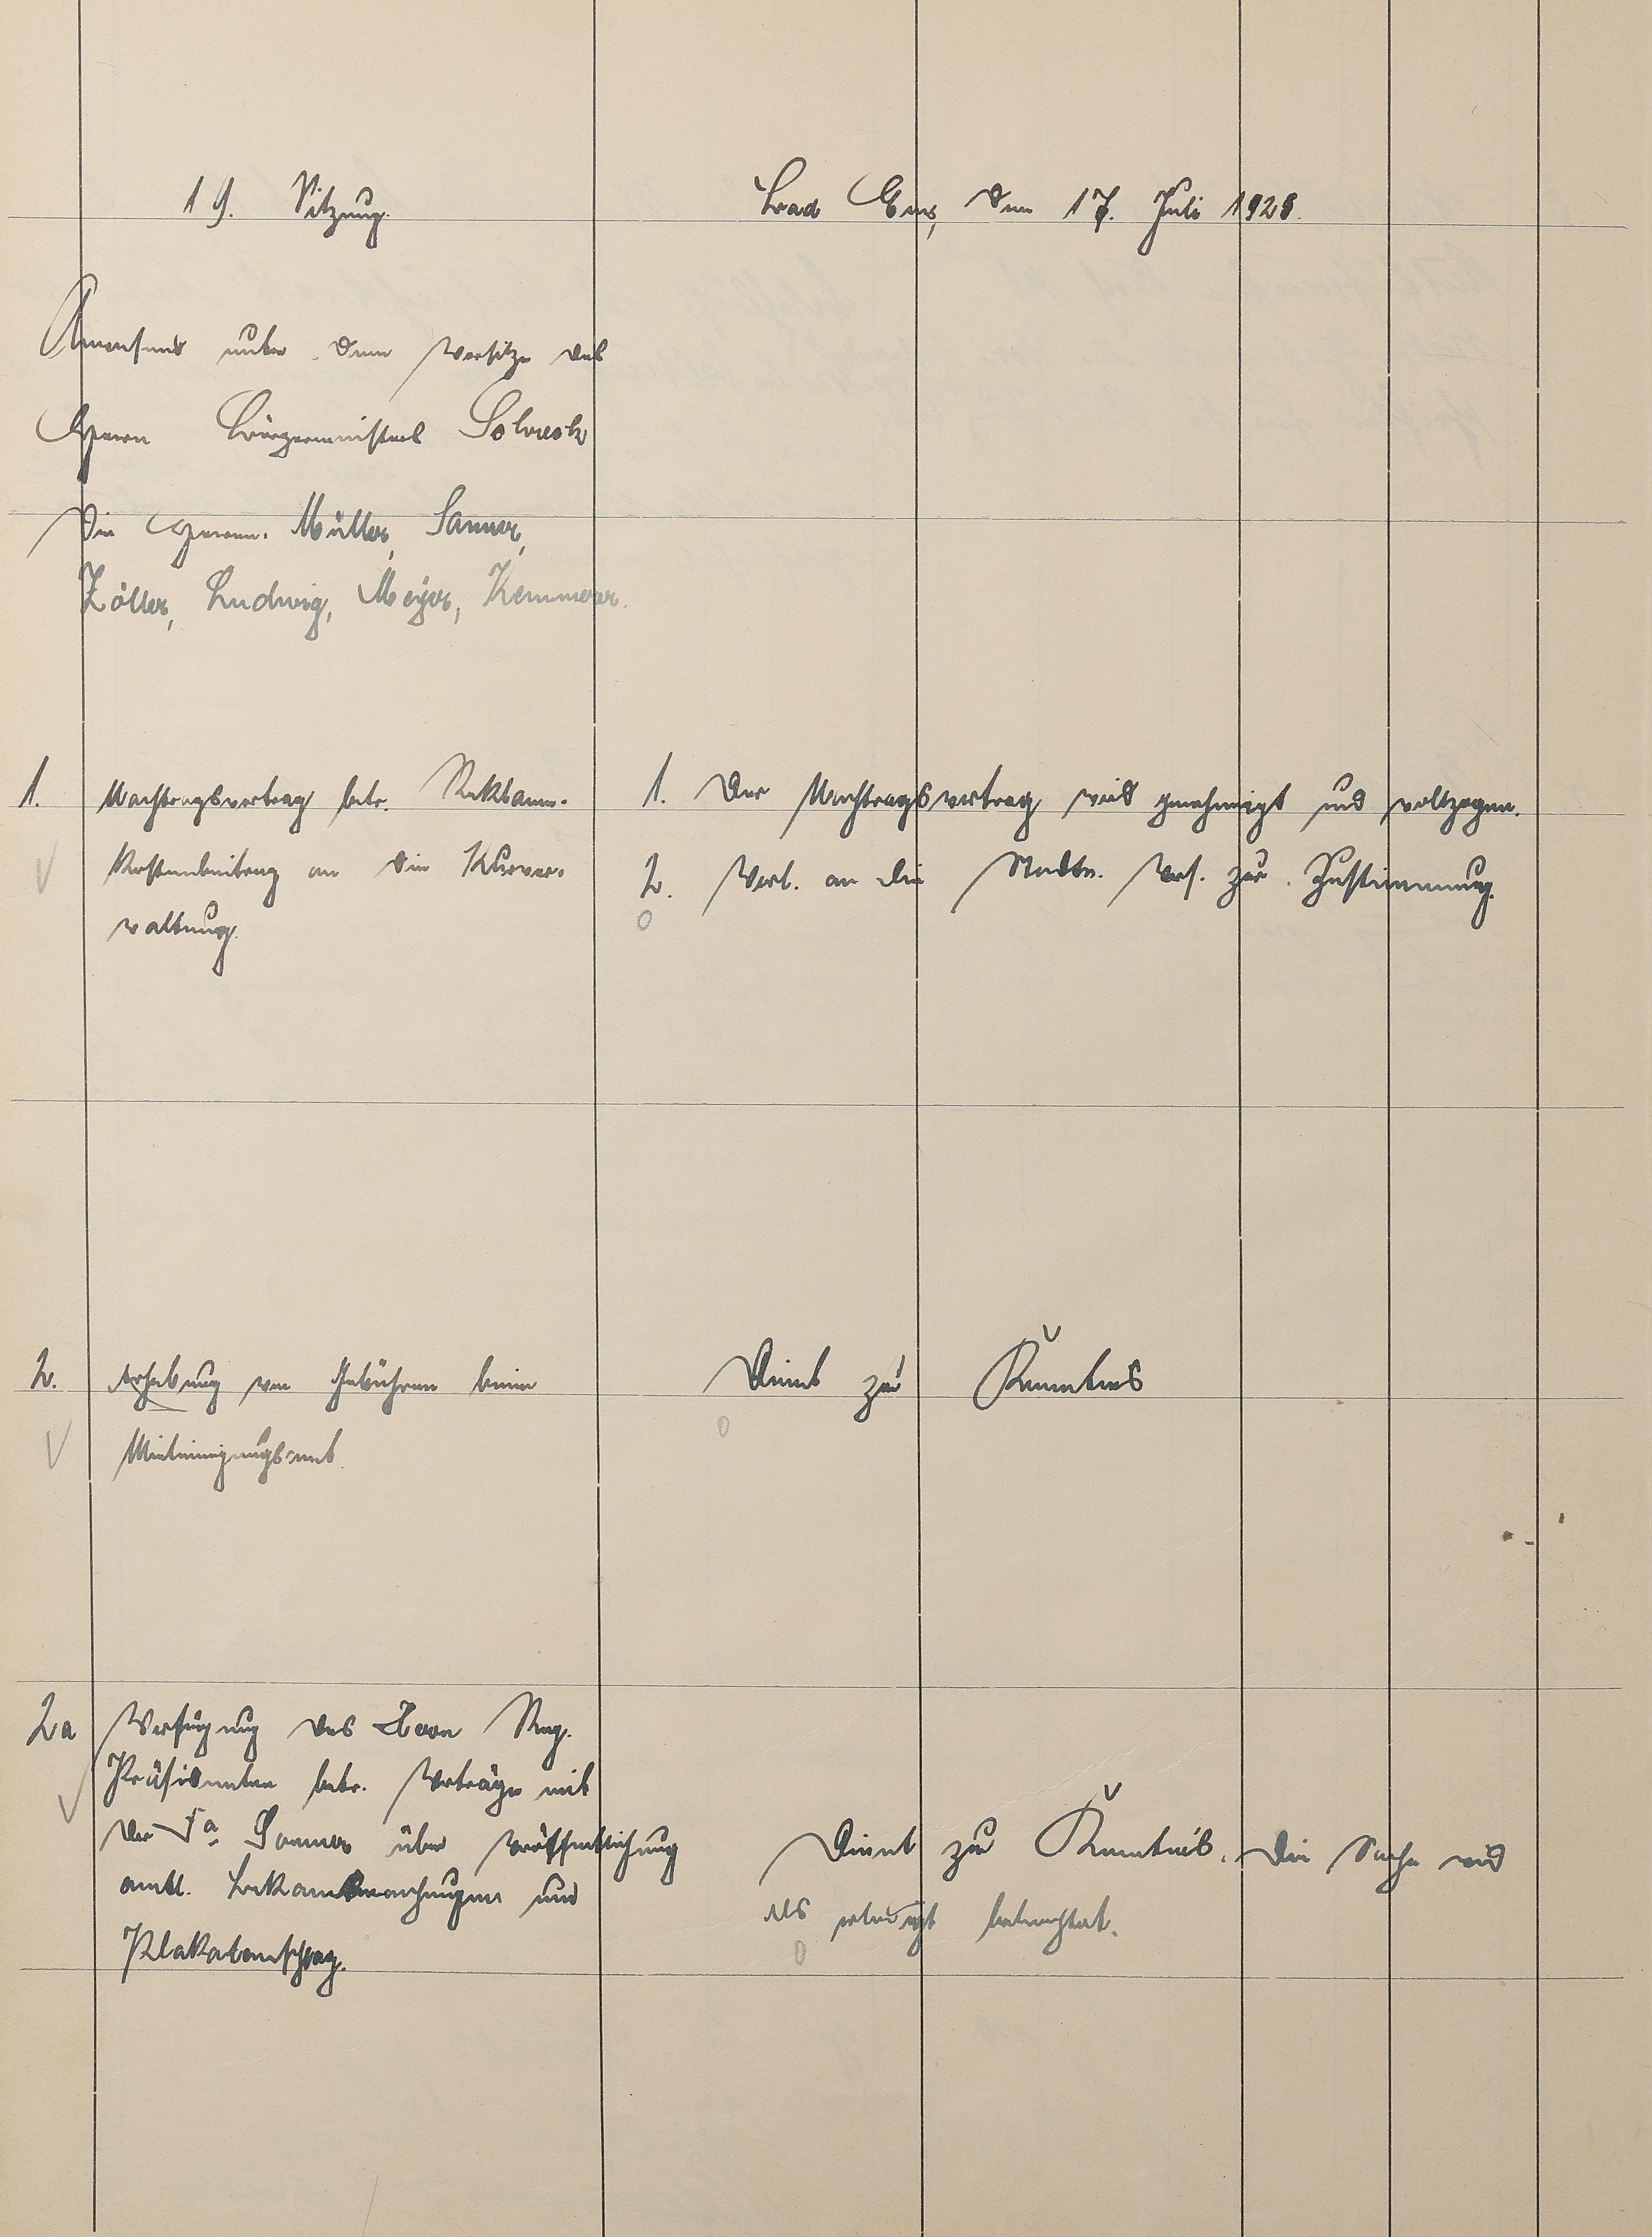 19. Sitzung.
Bad Ems, den 17. Juli 1928.
Anwesend unter dem Vorsitze des
Herrn Bürgermeisters Schreck
die Herren: Müller, Sanner,
Zöller, Ludwig, Meyer, Kemmerer.
1. Nachtragsvertrag betr. Reklame-
Kostenbeitrag an die Kurver-
waltung.
1. Der Nachtragsvertrag wird genehmigt und vollzogen.
2. Vorl. an die Stadtv. Vers. zur Zustimmung.
2. Erhebung von Gebühren beim
Mieteinigungsamt.
Dient zur Kenntnis
2a Verfügung des Herrn Reg.
Präsidenten betr. Verträge mit
der Fa. Sommer über Veröffentlichung
amtl. Bekanntmachungen und
Plakatanschlag.
Dient zur Kenntnis. Die Sache wird
als erledigt betrachtet.